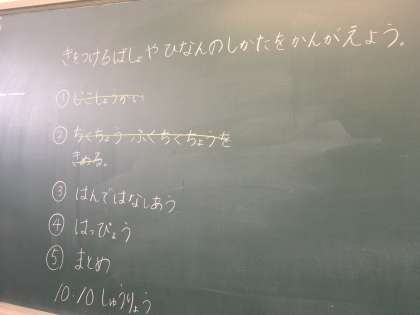 きをつけるばしょやひなんのしかたをかんがえよう。
① じこしょうかい
② ちくちょう ふくちくちょうを
きめる。
③ はんではなしあう
④ はっぴょう
⑤ まとめ
10:10 しゅうりょう